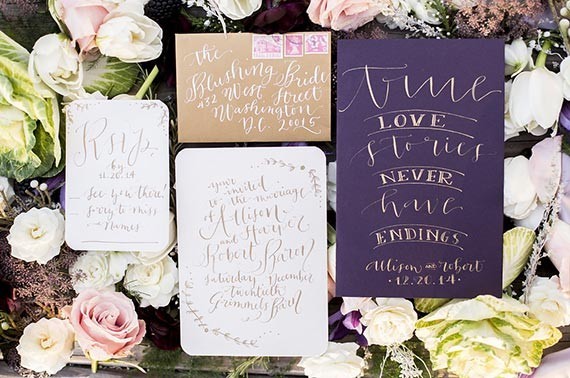 Rsvp
by
11.20.14
See you there!
Sorry to miss
Names
The
Blushing Bride
432 West Street
Washington
D.C. 20015
you're
invited
to the marriage
of Allison
Harper
and
Robert Baron
Saturday December
twentieth
Grammels Barn
true
LOVE
stories
NEVER
have
ENDINGS
Allison and Robert
• 12.20.14 •